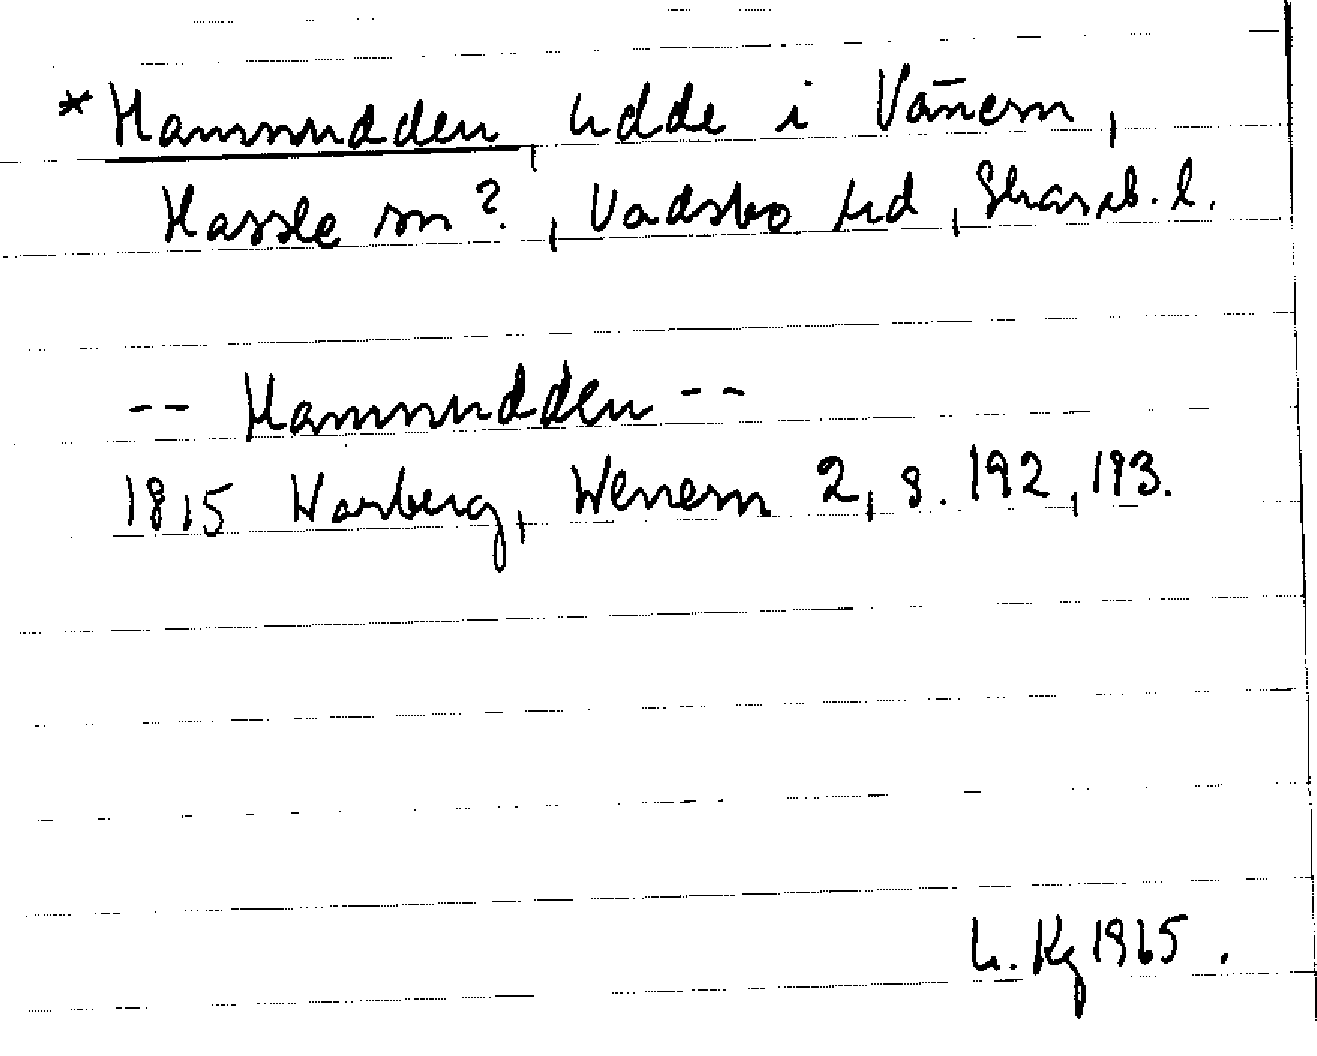 *Hamnudden, udde i Vänern,
Hassle sn?, Vadsbo hd, Skarab. l.
-- Hamnudden --
1815 Warberg, Wenern 2, s. 192, 193.
L. Kg 1965.